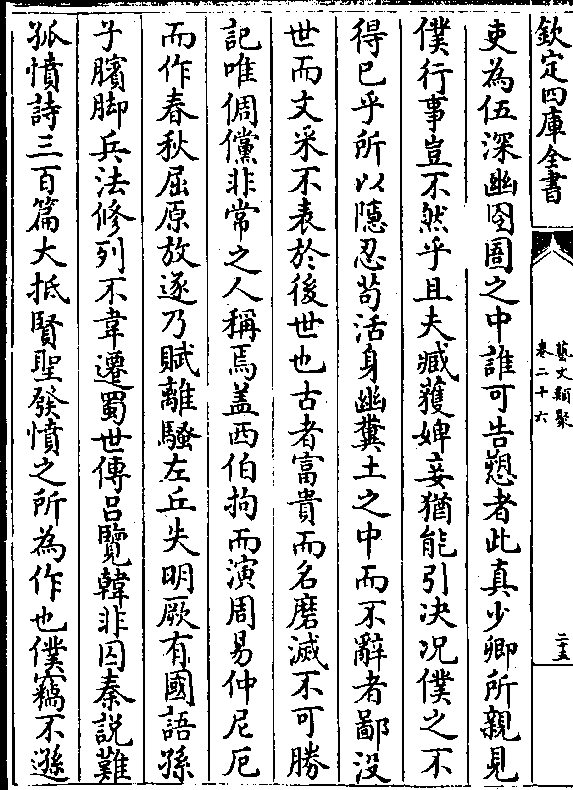 欽定四庫全書
藝文類聚
卷二十六
二十五
吏為伍深幽囹圄之中誰可告愬者此真少卿所親見
僕行事豈不然乎且夫臧獲婢妾猶能引决况僕之不
得已乎所以隱忍茍活身幽糞土之中而不辭者鄙没
世而文采不表於後世也古者富貴而名磨滅不可勝
記唯倜儻非常之人稱焉盖西伯拘而演周易仲尼厄
而作春秋屈原放逐乃賦離騷左丘失明厥有國語孫
子臏脚兵法修列不韋遷蜀世傳吕覽韓非囚秦說難
孤憤詩三百篇大抵賢聖發憤之所為作也僕竊不遜